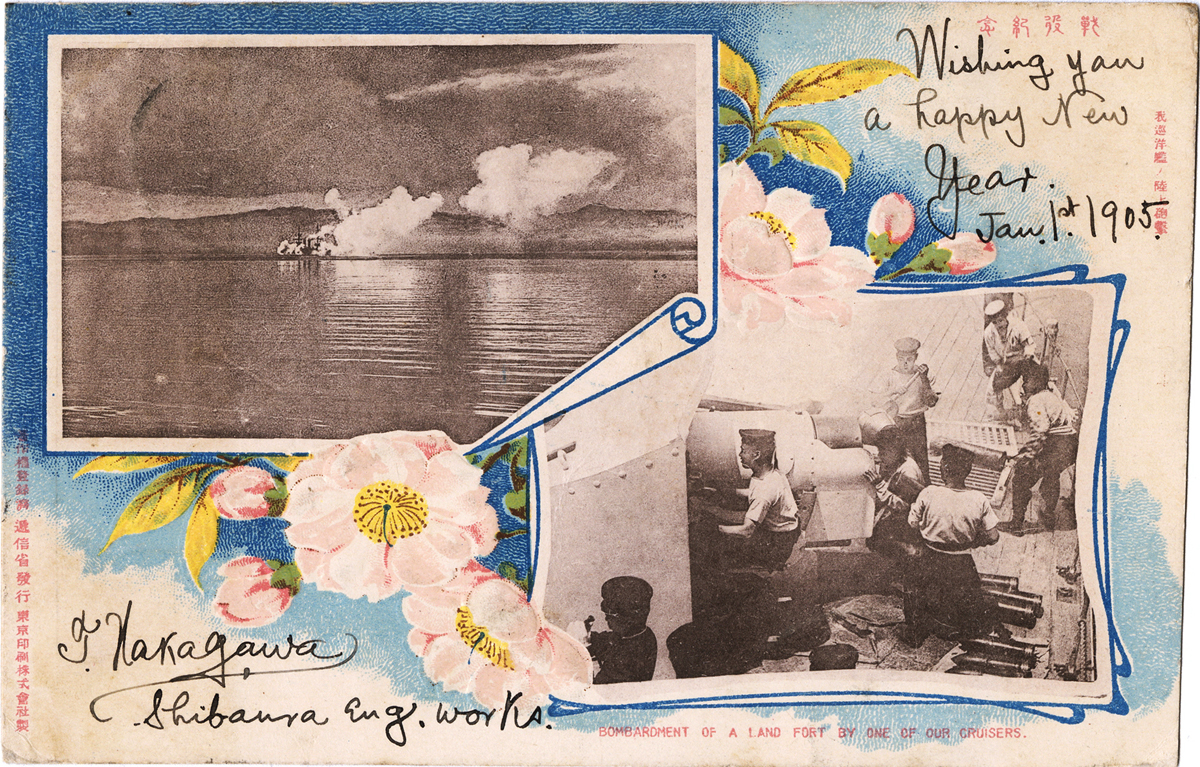 戰役紀念
Wishing you
a happy New
Year.
Jan. 1st. 1905.
我巡洋艦ノ陸上砲擊
T. Nakagawa
Shibaura Eng. works.
BOMBARDMENT OF A LAND FORT BY ONE OF OUR CRUISERS.
遞信省發行
東京印刷株式會社製